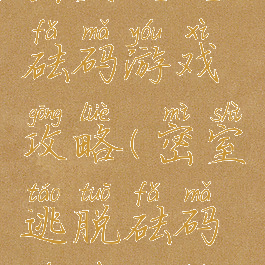 fá mǎ yóu xì
砝码游戏
gōng lüè mì shì
攻略(密室
táo tuō fá mǎ
逃脱砝码